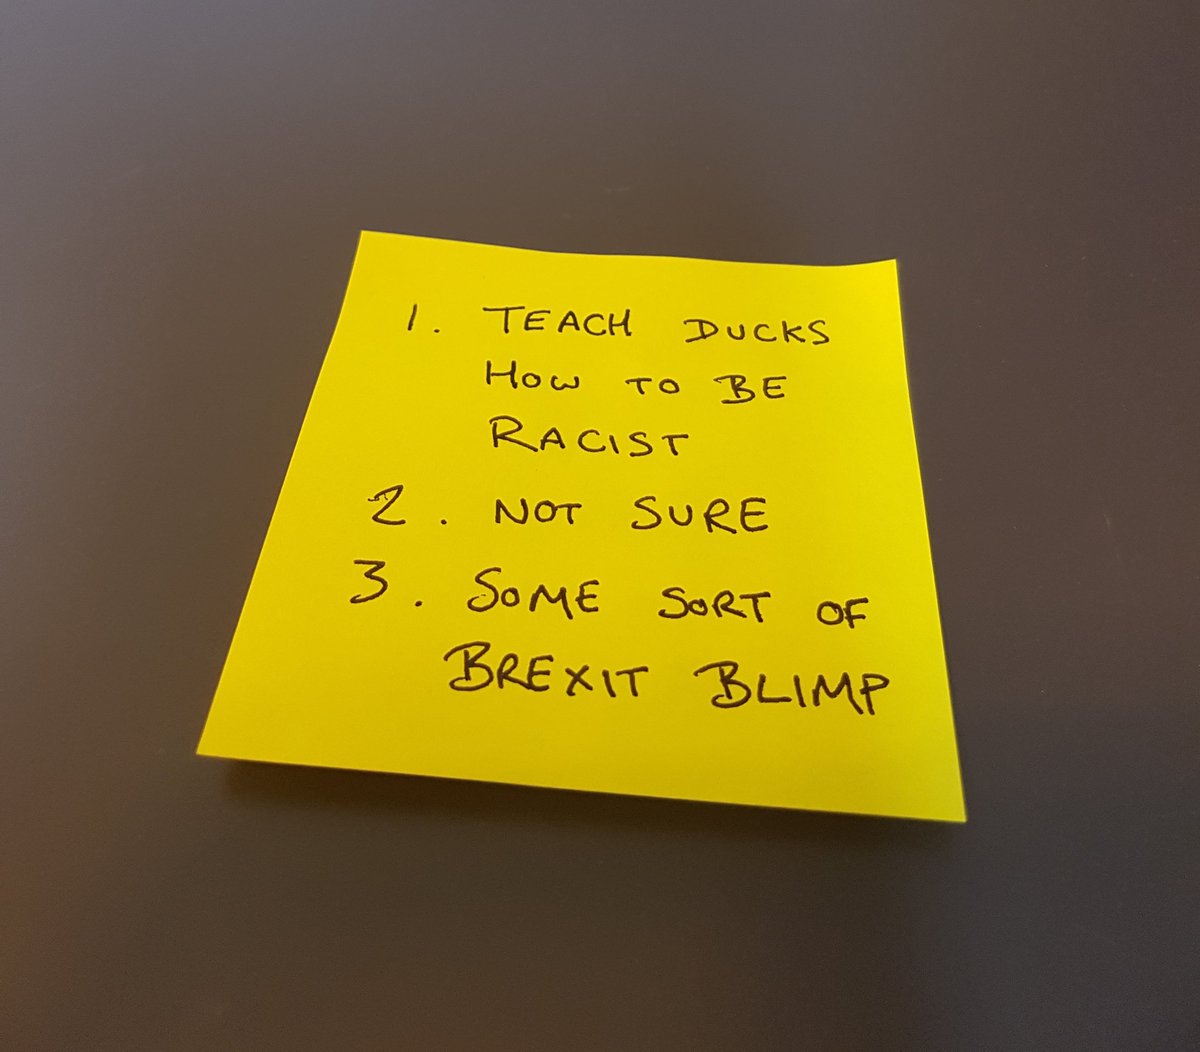 1. TEACH DUCKS
HOW TO BE
RACIST
2. NOT SURE
3. SOME SORT OF
BREXIT BLIMP